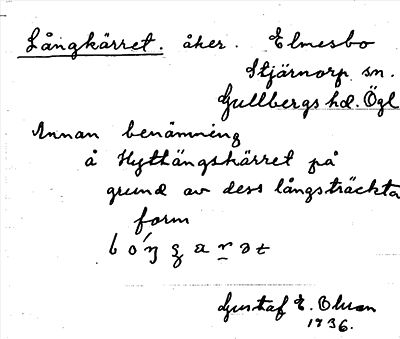 Långkärret. åker. Elmesbo
Stjärnorp sn.
Gullbergs hd. Ögl
Annan benämning
å Hytthängskärret på
grund av dess långsträckta
form
Gustaf E. Olsson
1936.